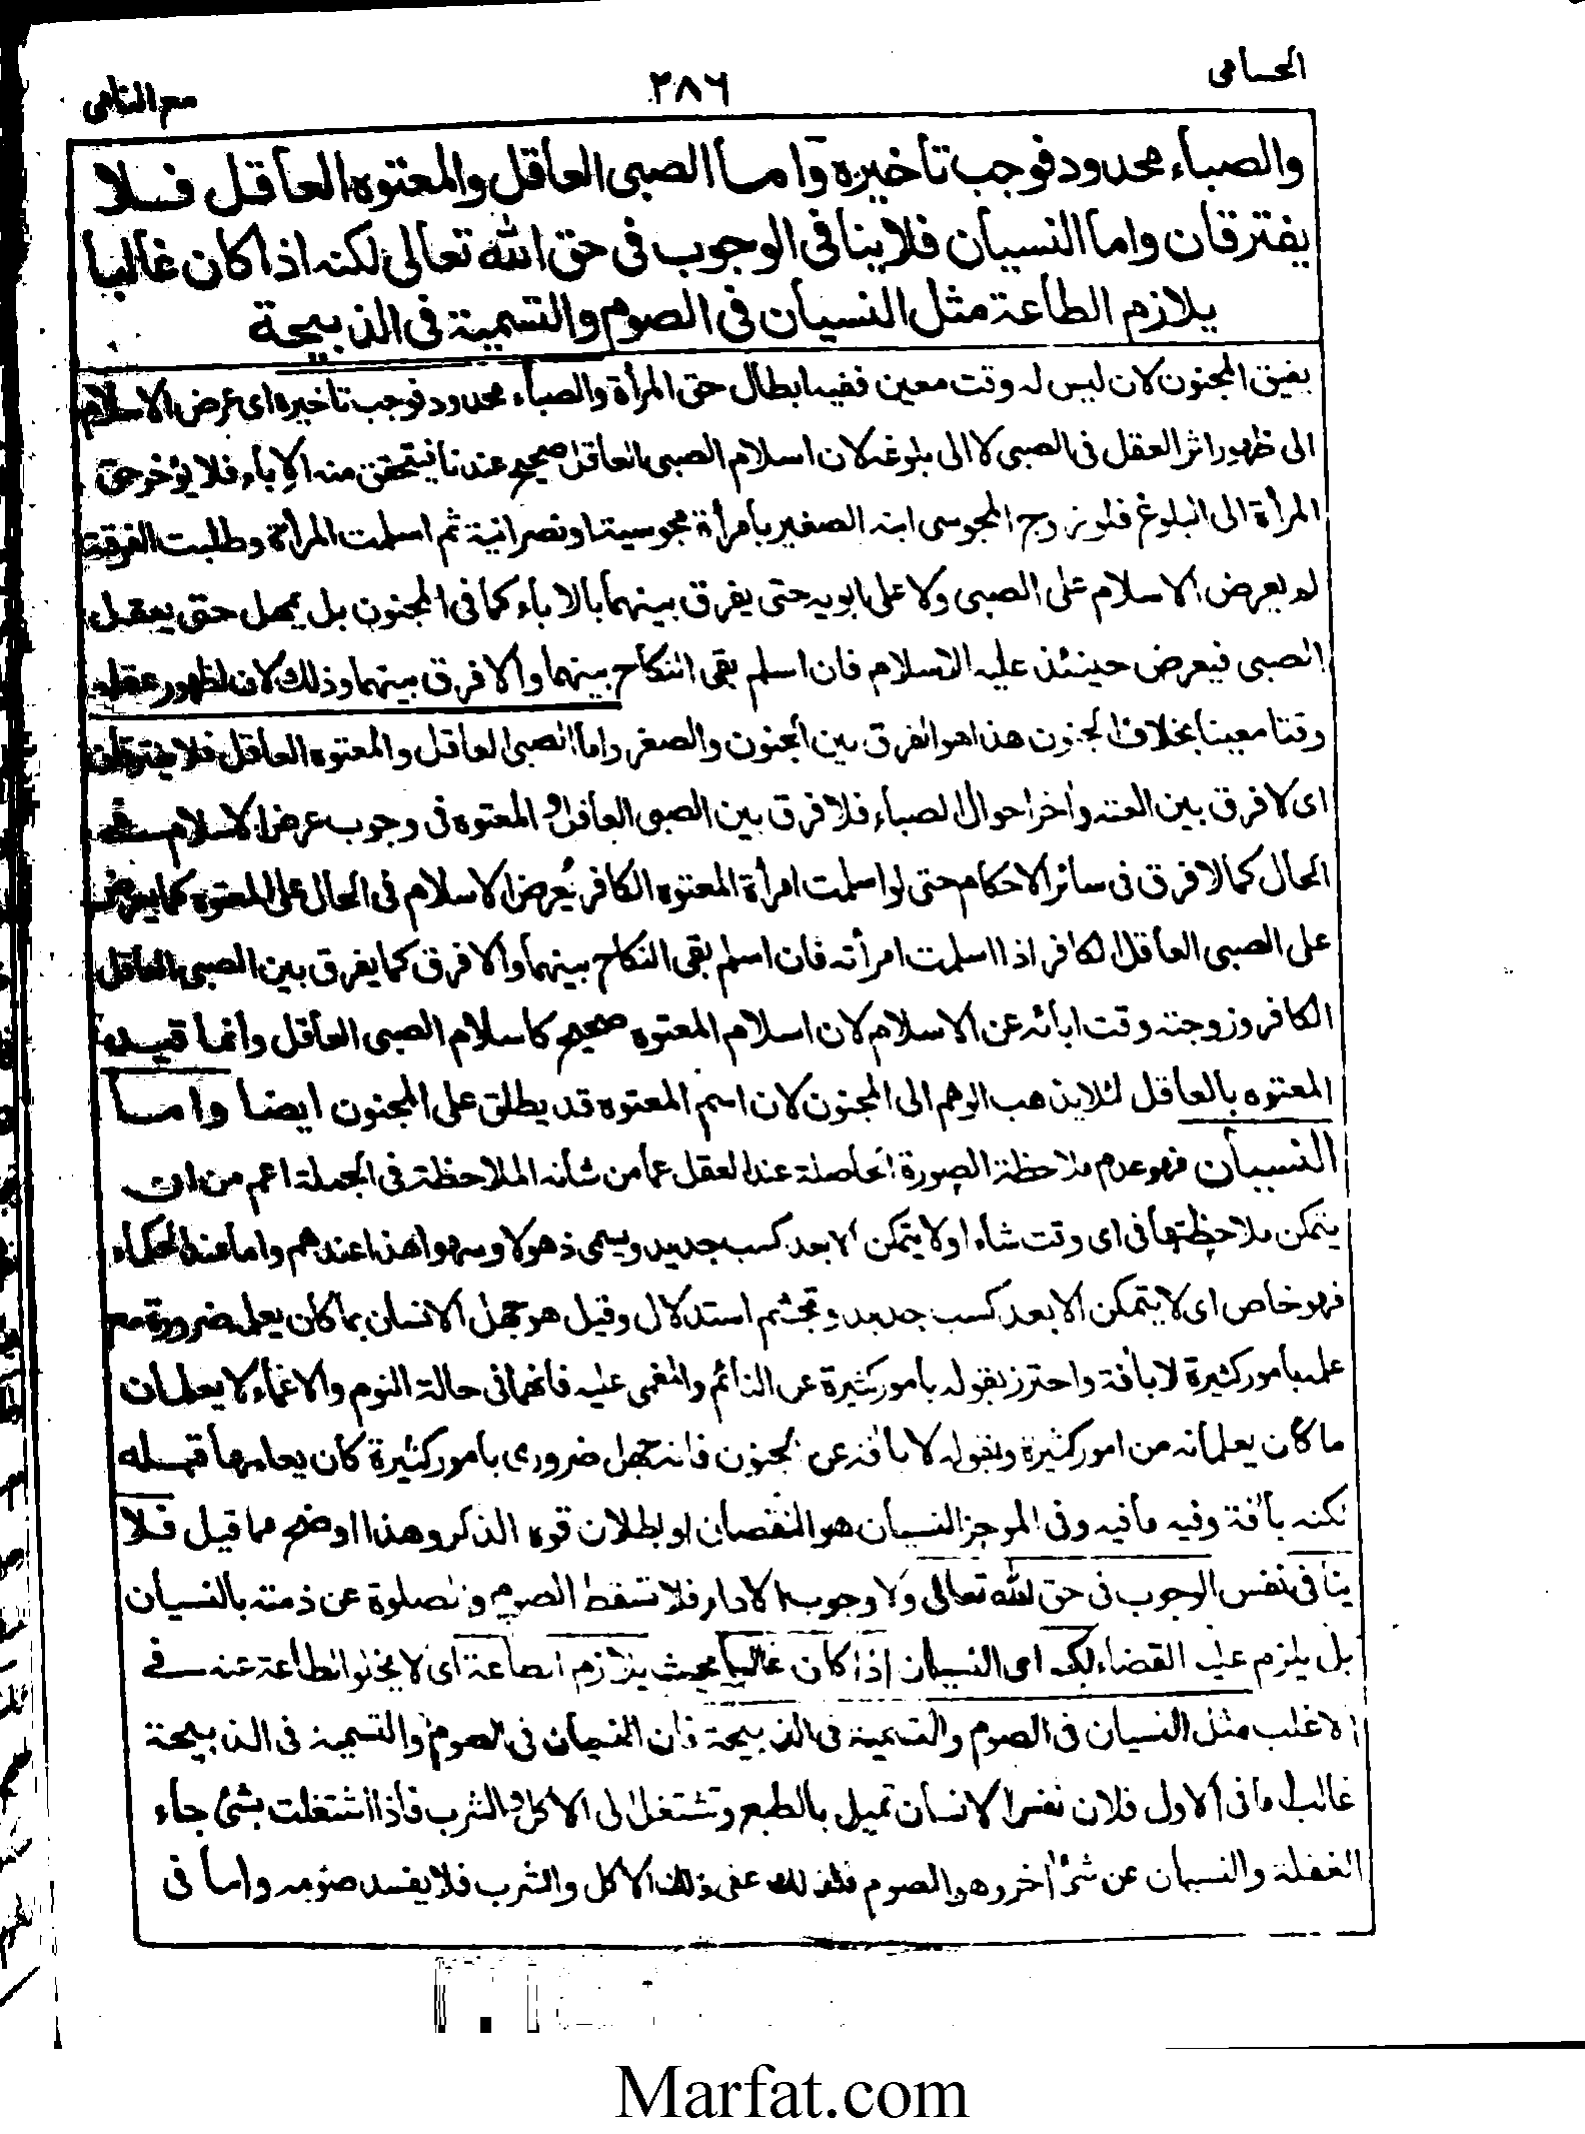 الحسامی
٢٨٦
مع النامی
والصباء محدود فوجب تاخیرہ واما الصبی العاقل والمعتوہ العاقل فلا
یفترقان واما النسیان فلا ینافی الوجوب فی حق اللہ تعالی لکنہ اذا کان غالبا
یلازم الطاعۃ مثل النسیان فی الصوم والتسمیۃ فی الذبیحۃ
یفیق المجنون لان لیس لہ وقت معین ففیہ ابطال حق المرأۃ والصباء محدود فوجب تاخیرہ ای عرض الاسلام
الی ظھور اثر العقل فی الصبی لا الی بلوغہ لان اسلام الصبی العاقل صحیح عندنا فیتحقق منہ الاِباء فلا یؤخر حق
المرأۃ الی البلوغ فلو زوج المجوسی ابنہ الصغیر بامرأۃ مجوسیۃ او نصرانیۃ ثم اسلمت المرأۃ وطلبت الفرقۃ
لم یعرض الاسلام علی الصبی ولا علی ابویہ حتی یفرق بینھما بالاباء کما فی المجنون بل یمھل حتی یعقل
الصبی فیعرض حینئذ علیہ الاسلام فان اسلم بقی النکاح بینھما والا فرق بینھما وذلک لان لظھور عقلہ
وقتا معینا بخلاف الجنون ھذا ھو الفرق بین الجنون والصغر واما الصبی العاقل والمعتوہ العاقل فلا یفترقان
ای لا فرق بین العتہ واٰخر احوال الصباء فلا فرق بین الصبی العاقل والمعتوہ فی وجوب عرض الاسلام فی
الحال کما لا فرق فی سائر الاحکام حتی لو اسلمت امرأۃ المعتوہ الکافر یُعرض الاسلام فی الحال علی المعتوہ کما یعرض
علی الصبی العاقل الکافر اذا اسلمت امرأتہ فان اسلم بقی النکاح بینھما والا فرق کما یفرق بین الصبی العاقل
الکافر وزوجتہ وقت ابائہ عن الاسلام لان اسلام المعتوہ صحیح کاسلام الصبی العاقل وانما قید
المعتوہ بالعاقل لئلا یذھب الوھم الی المجنون لان اسم المعتوہ قد یطلق علی المجنون ایضا واما
النسیان فھو عدم ملاحظۃ الصورۃ الحاصلۃ عند العقل عما من شأنہ الملاحظۃ فی الجملۃ اعم من ان
یتمکن ملاحظتھا فی ای وقت شاء او لا یتمکن الا بعد کسب جدید ویسمی ذھولا وسھوا ھذا عندھم واما عند الحکماء
فھو خاص ای لا یتمکن الا بعد کسب جدید وتجشم استدلال وقیل ھو جھل الانسان بما کان یعلمہ ضرورۃ مع
علمہ بامور کثیرۃ لا بآفۃ واحترز بقولہ بامور کثیرۃ عن النائم والمغمی علیہ فانھما فی حالۃ النوم والاغماء لا یعلمان
ما کان یعلمانہ من امور کثیرۃ وبقولہ لا بآفۃ عن الجنون فانہ جھل ضروری بامور کثیرۃ کان یعلمھا قبلہ
لکنہ بآفۃ وفیہ مافیہ وفی الموجز النسیان ھو النقصان او بطلان قوۃ الذکر وھذا اوضح مما قیل فلا
ینافی نفس الوجوب فی حق اللہ تعالی ولا وجوب الاداء فلا تسقط الصوم والصلوۃ عن ذمتہ بالنسیان
بل یلزم علیہ القضاء لکنہ ای النسیان اذا کان غالبا بحیث یلازم الطاعۃ ای لا یخلو الطاعۃ عنہ فی
الاغلب مثل النسیان فی الصوم والتسمیۃ فی الذبیحۃ فان النسیان فی الصوم والتسمیۃ فی الذبیحۃ
غالب اما فی الاول فلان نفس الانسان تمیل بالطبع وتشتغل الی الاکل والشرب فاذا اشتغلت بشئ جاء
الغفلۃ والنسیان عن شئ اٰخر وھو الصوم فلذلک عفی ذلک الاکل والشرب فلا یفسد صومہ واما فی
Marfat.com